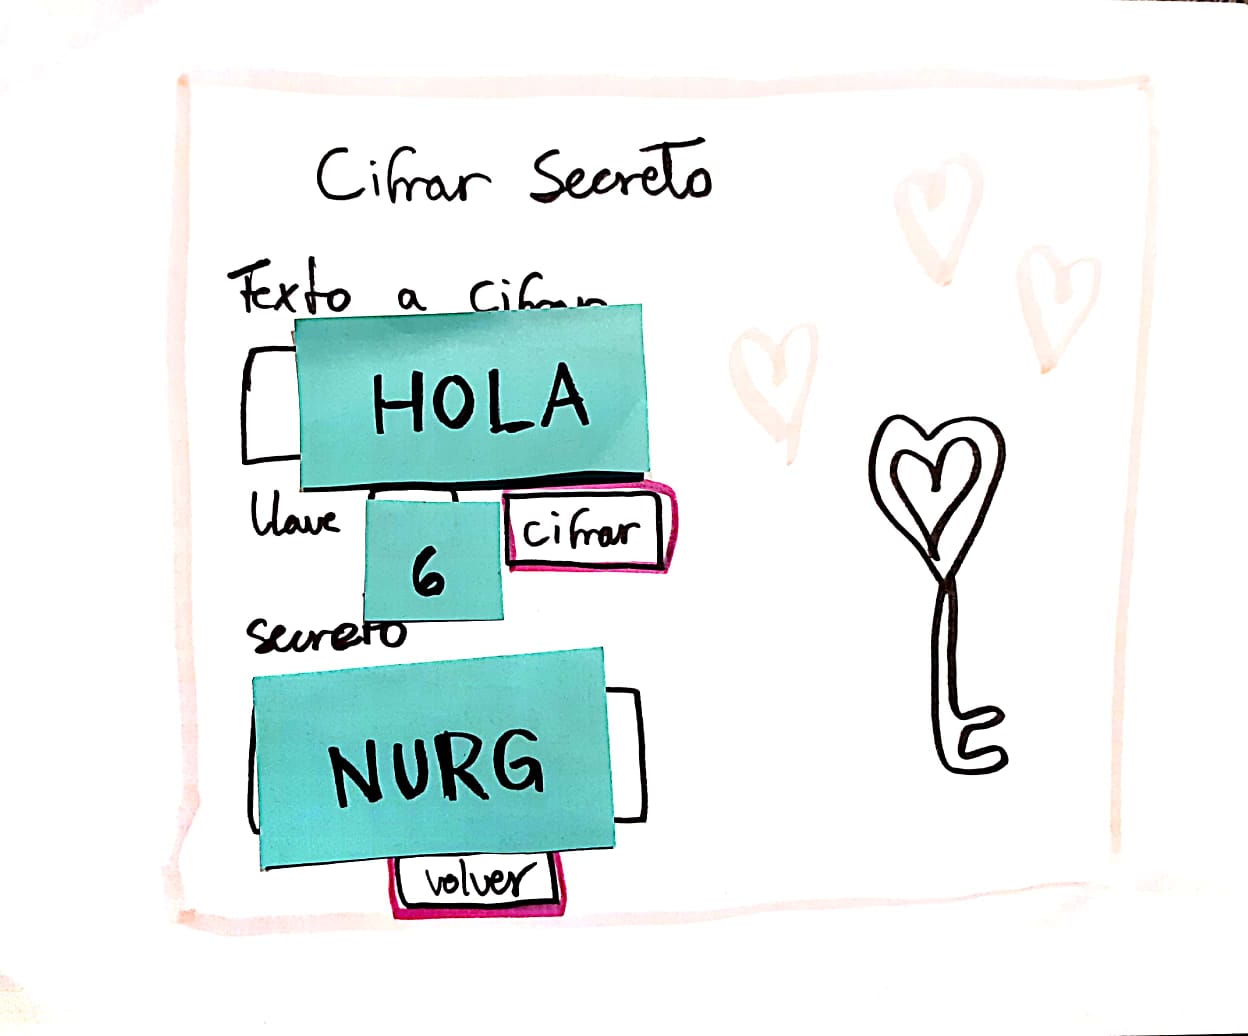 Cifrar Secreto
Texto a cifrar
HOLA
Llave
6
cifrar
secreto
NURG
volver